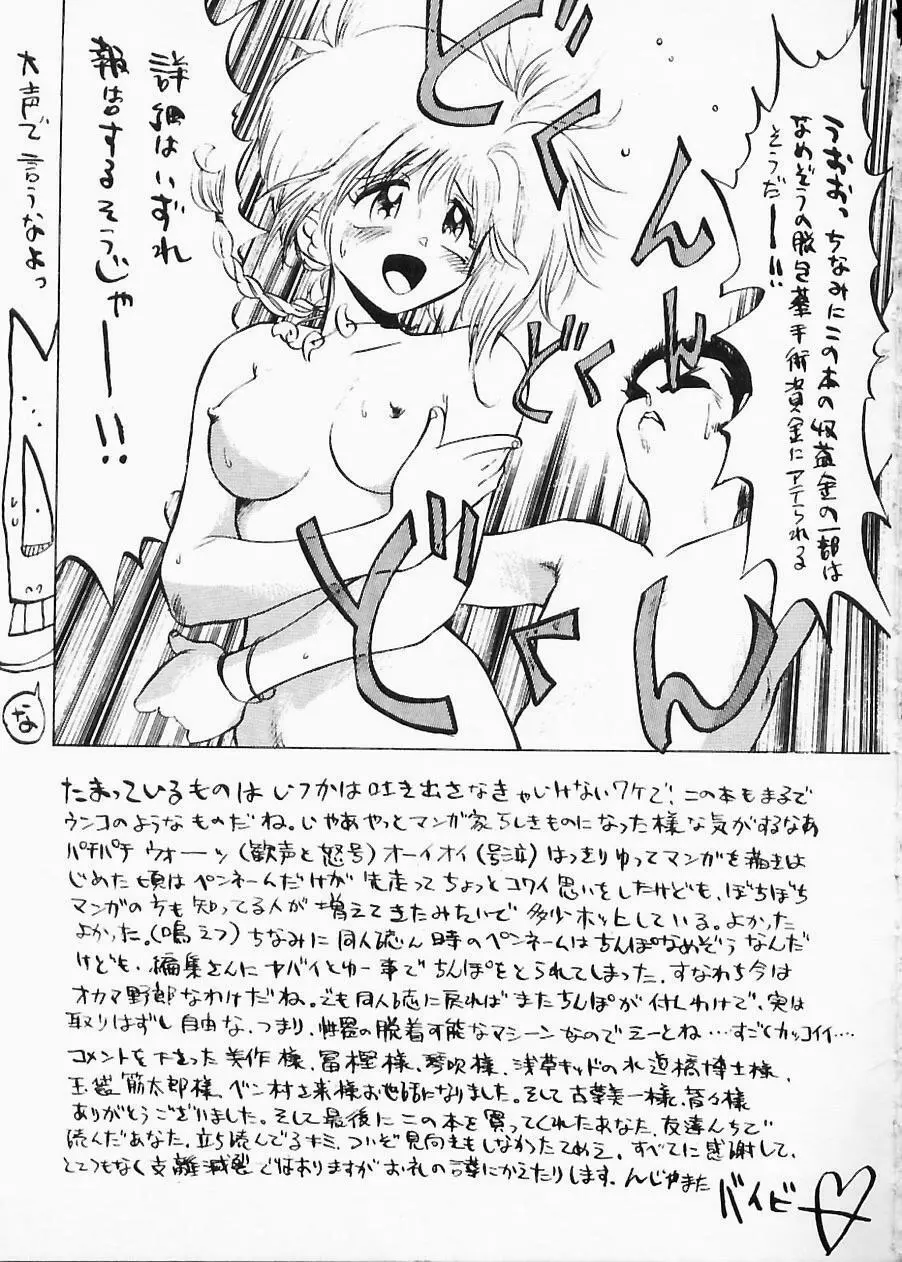 うおおっちなみにこの本の収益金の一部は
なめぞうの脱包茎手術資金にアテられる
そうだー!!
どくん
どくん
どくん
詳細はいずれ
報告するそうじゃ
ーー!!
大声で言うなよっ
な
たまっているものはいつかは吐き出さなきゃいけないワケで!この本もまるで
ウンコのようなものだね。じゃあやっとマンガ家らしきものになった様な気がするなあ
パチパチ ウォーッ(歓声と怒号)オーイオイ(号泣)はっきりゆってマンガを描きは
じめた頃はペンネームだけが先走ってちょっとコワイ思いをしたけども、ぼちぼち
マンガの方も知ってる人が増えてきたみたいで多少ホッとしている。よかった
よかった。(嗚えつ)ちなみに同人誌ん時のペンネームはちんぽなめぞうなんだ
けども、編集さんにヤバイとゆー事でちんぽをとられてしまった、すなわち今は
オカマ野郎なわけだね。でも同人誌に戻ればまたちんぽが付くわけで、実は
取りはずし自由な、つまり、性器の脱着可能なマシーンなのでえーとね…すごくカッコイイ…
コメントを下さった美作様、冨樫様、琴吹様、浅草キッドの水道橋博士様、
玉袋筋太郎様、ベン村さ来様お世話になりました。そして古葉美一様、皆々様
ありがとうございました。そして最後にこの本を買ってくれたあなた、友達んちで
読んだあなた、立ち読んでるキミ、ついぞ見向きもしなかったてめえ。すべてに感謝して、
とてつもなく支離滅裂ではありますがお礼の言葉にかえたりします。んじゃまた
バイビ